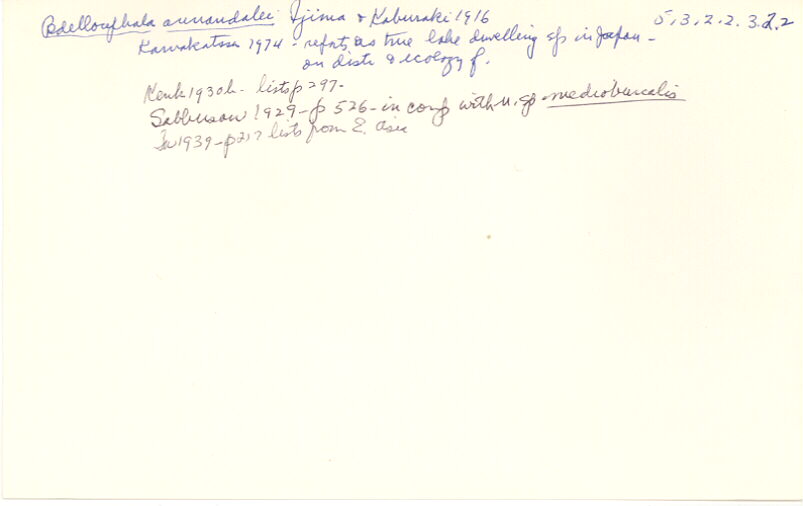 Bdellocephala annandalei Ijima & Kaburaki 1916 5.3.2.2.3.2.2
Kawakatsu 1974 - refnts as true lake dwelling sp in Japan -
on distr & ecology p.
Kenk 1930b - lists p 297 -
Sabbusow 1929 - p 526 - in comp with n. sp mediobuccalis
In 1939 - p 217 lists from E. Asia